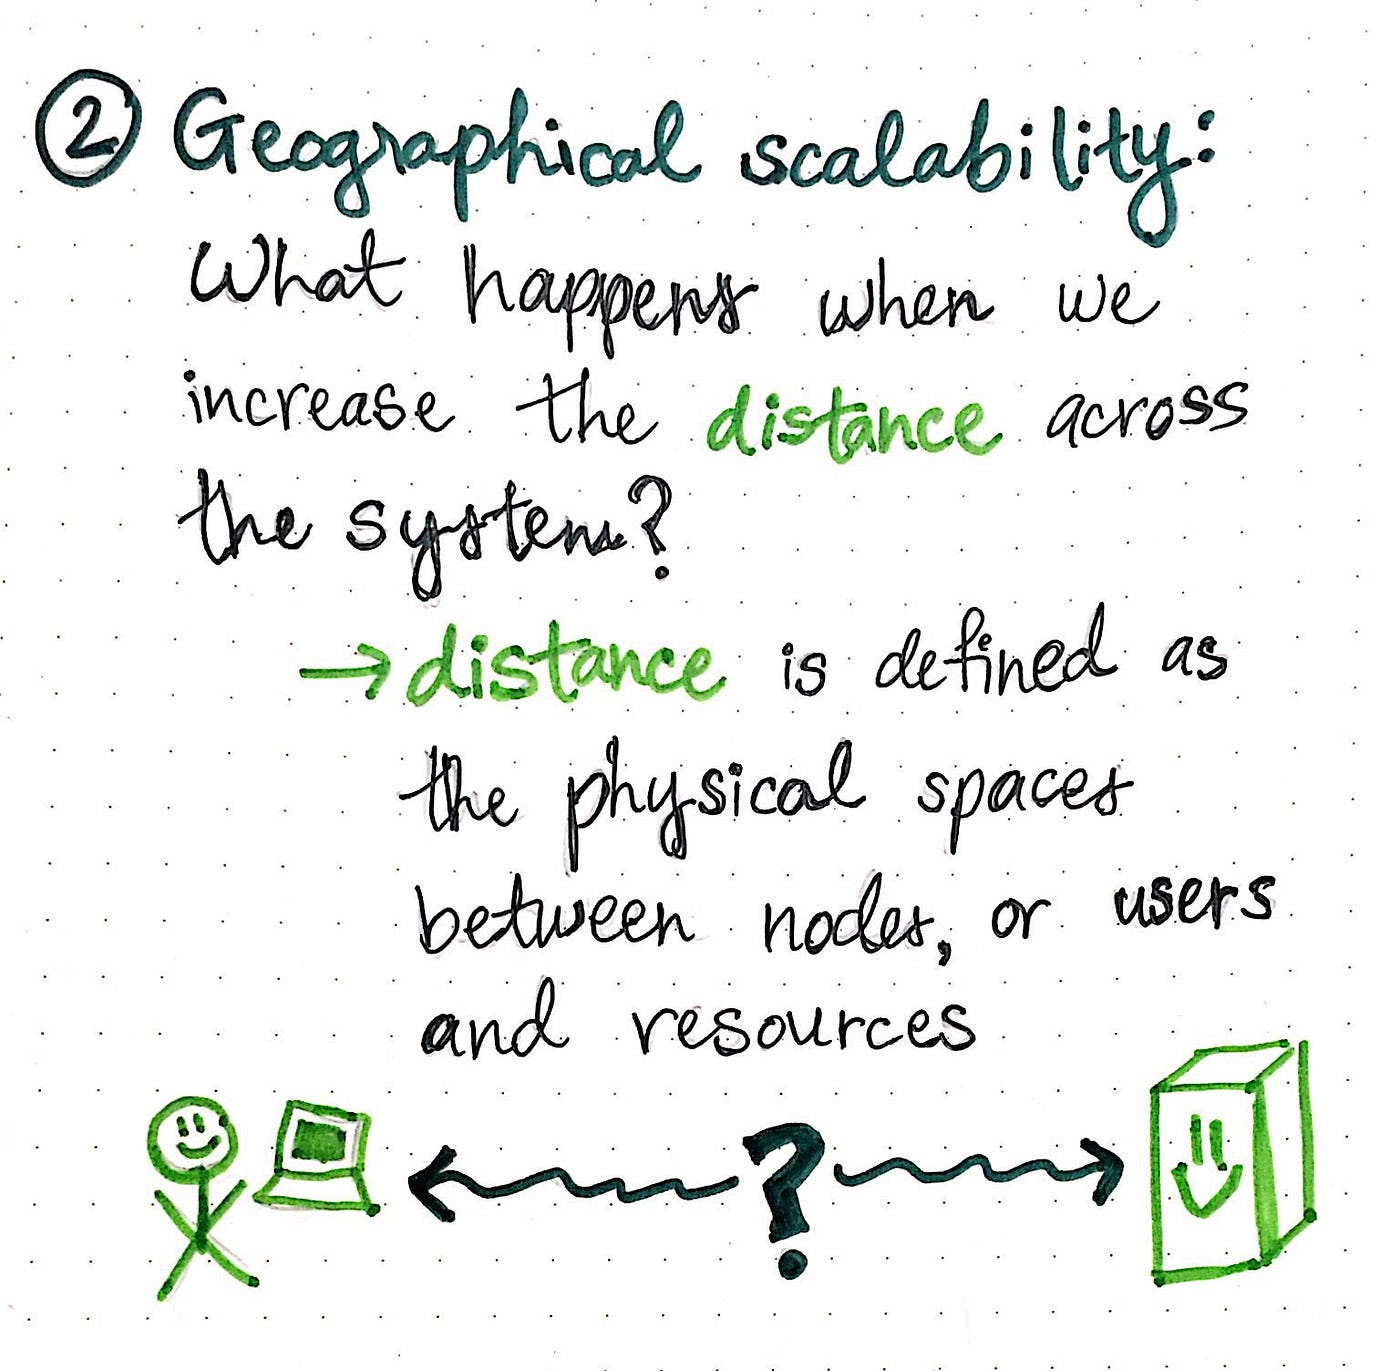 ② Geographical scalability:
What happens when we
increase the distance across
the system?
→ distance is defined as
the physical spaces
between nodes, or users
and resources
?